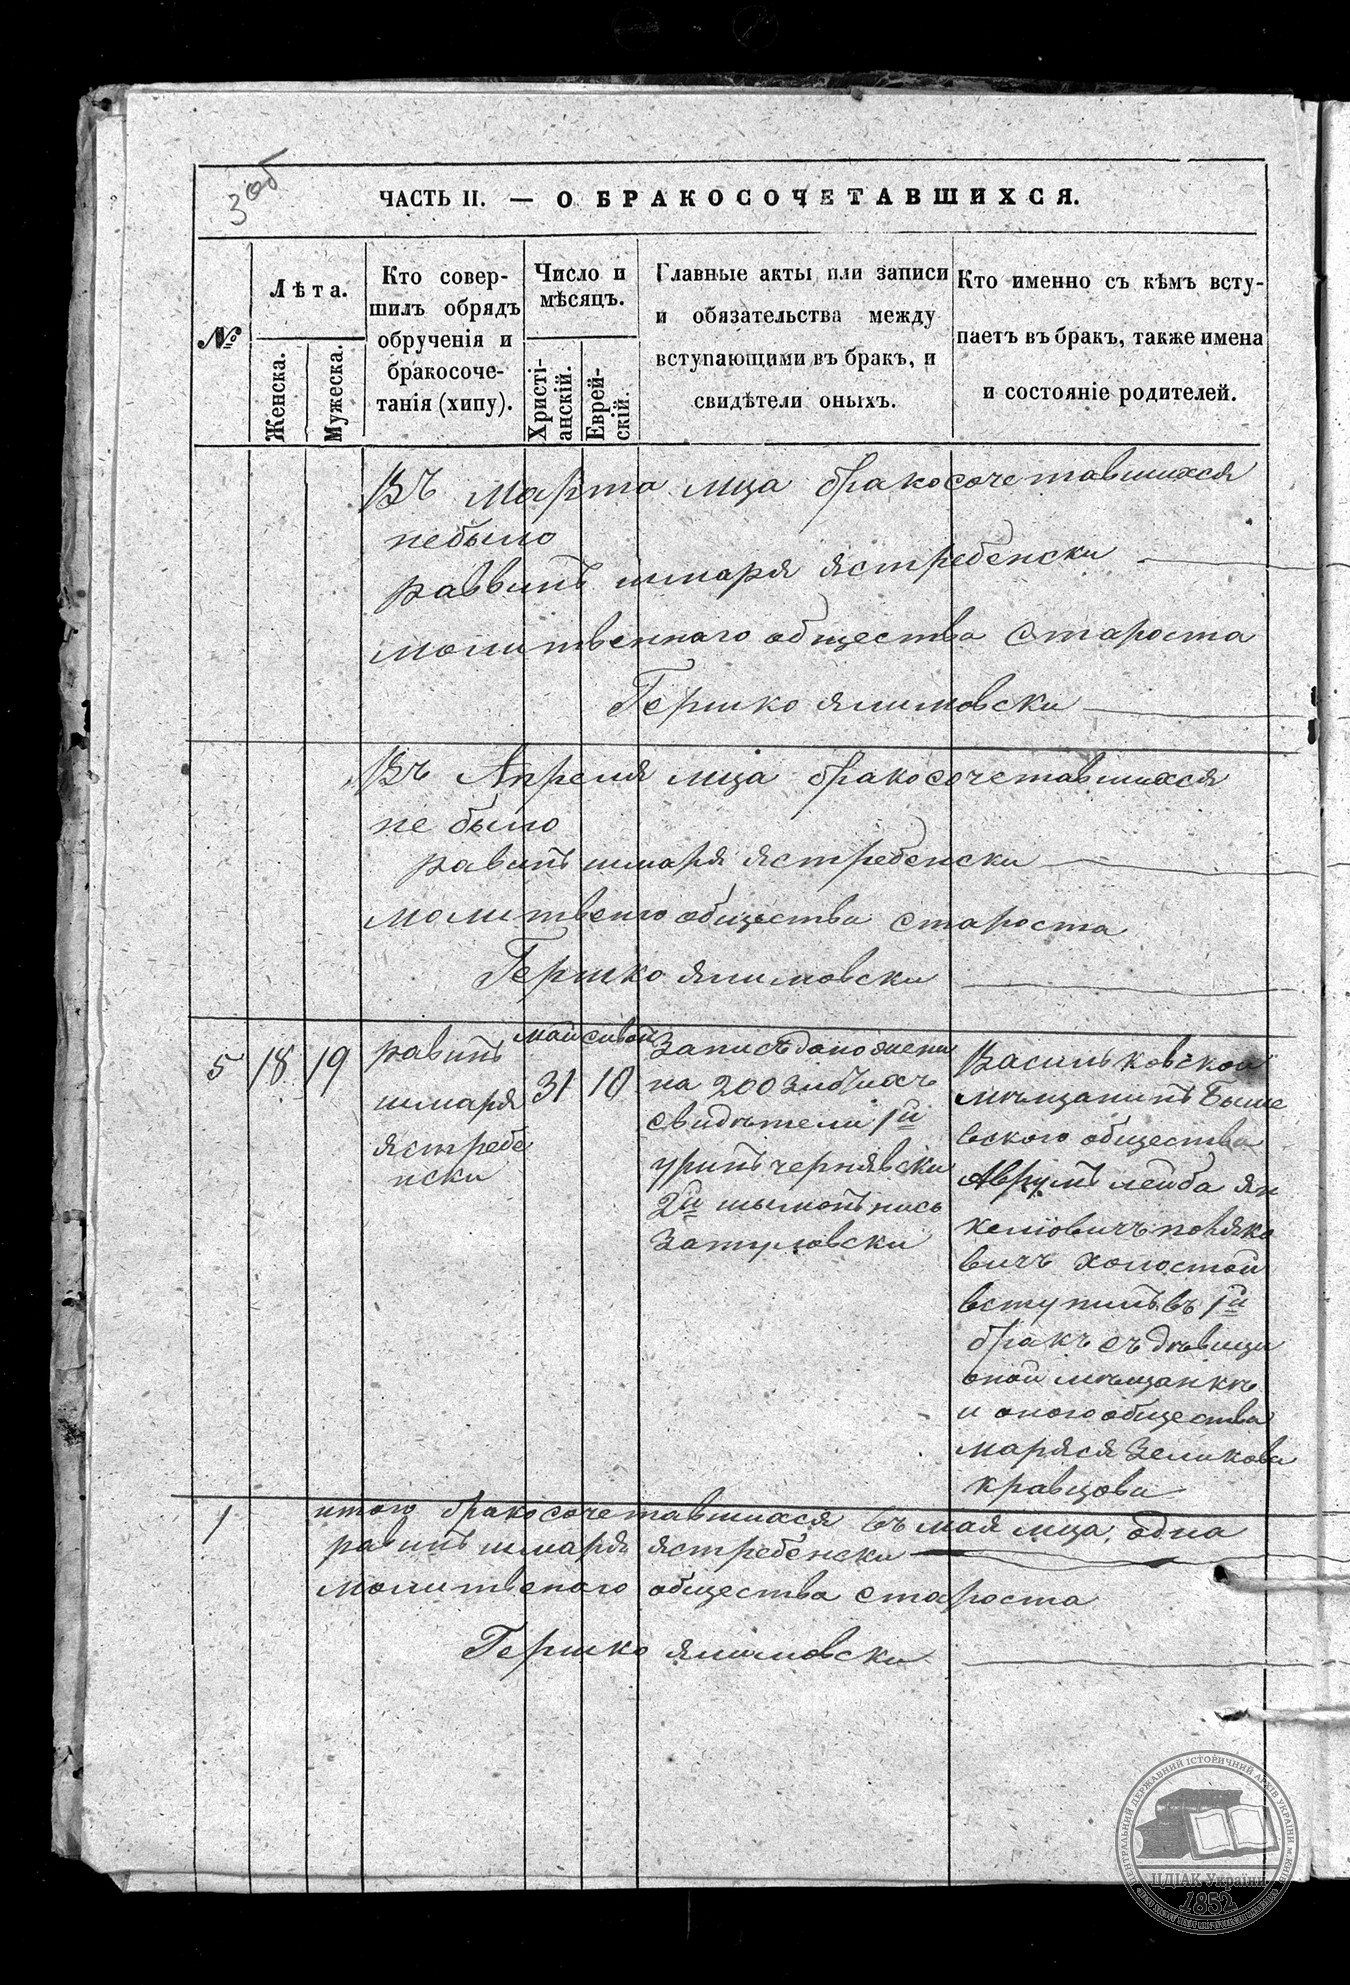 3об
ЧАСТЬ II. — О БРАКОСОЧЕТАВШИХСЯ.
№
Лѣта.
Женска.
Мужеска.
Кто совер-
шилъ обрядъ
обрученія и
бракосоче-
танія (хипу).
Число и
мѣсяцъ.
Христі-
анскій.
Еврей-
скій.
Главные акты или записи
и обязательства между
вступающими въ бракъ, и
свидѣтели оныхъ.
Кто именно съ кѣмъ всту-
паетъ въ бракъ, также имена
и состояніе родителей.
Въ Марта мца бракосочетавшихся
небыло
раввинъ шмаря ястребенски
молитвеннаго общества староста
Гершко
Въ Апреля мца бракосочетавшихся
не было
равинъ шмаря ястребенски
молитвенго общества староста
Гершко
5 18 19
равинъ
шмаря
ястребе
нски
май сивон
31 10
Записъ дано
на 200
свидѣтели 1й
уринъ чернявски
2й
Затуловски
Васильковской
мѣщанинъ Быше
вского общества
Аврумъ лейба ян
келiовичъ
вичъ холостой
вступилъ въ 1й
бракъ съ дѣвици
оной мѣщанкѣ
и оного общества
маряся Зеликова
кравцова
1
итого бракосочетавшихся въ мая мца одна
равинъ шмаря ястребенски
молитвеного общества староста
Гершко
ЦЕНТРАЛЬНИЙ ДЕРЖАВНИЙ ІСТОРИЧНИЙ АРХІВ УКРАЇНИ м. КИЇВ
ЦДІАК України
1852